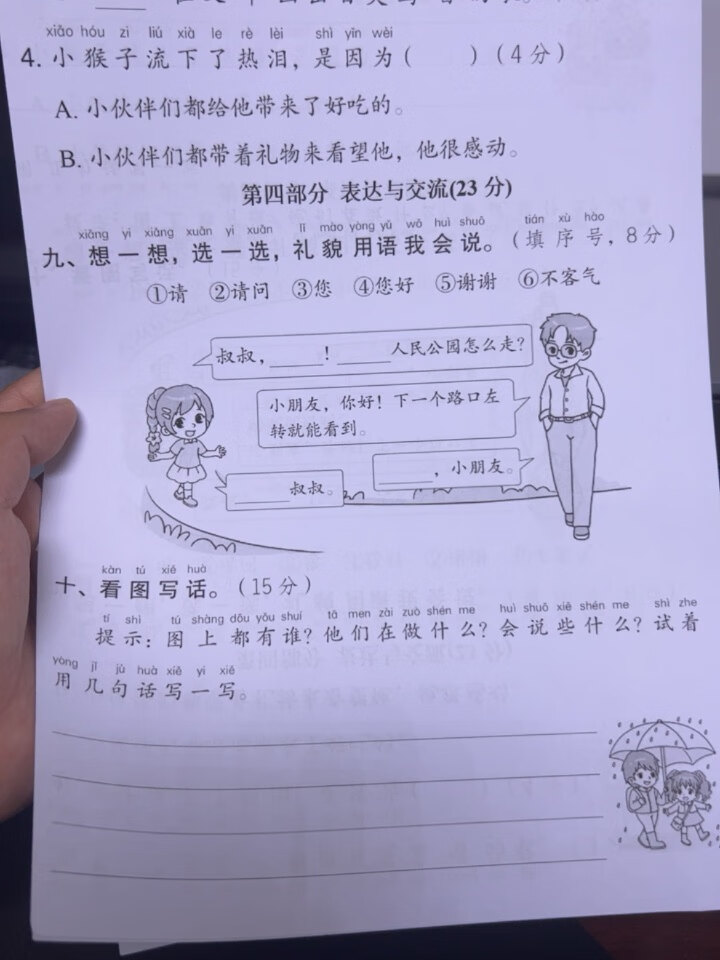 xiǎo hóu zi liú xià le rè lèi shì yīn wèi
4. 小猴子流下了热泪，是因为（ ）（4分）
A. 小伙伴们都给他带来了好吃的。
B. 小伙伴们都带着礼物来看望他，他很感动。
第四部分 表达与交流(23分)
xiǎng yi xiǎng xuǎn yi xuǎn lǐ mào yòng yǔ wǒ huì shuō tián xù hào
九、想一想，选一选，礼貌用语我会说。（填序号，8分）
①请 ②请问 ③您 ④您好 ⑤谢谢 ⑥不客气
叔叔，______！______人民公园怎么走？
小朋友，你好！下一个路口左
转就能看到。
______，小朋友。
______叔叔。
kàn tú xiě huà
十、看图写话。（15分）
tí shì tú shàng dōu yǒu shuí tā men zài zuò shén me huì shuō xiē shén me shì zhe
提示：图上都有谁？他们在做什么？会说些什么？试着
yòng jǐ jù huà xiě yi xiě
用几句话写一写。